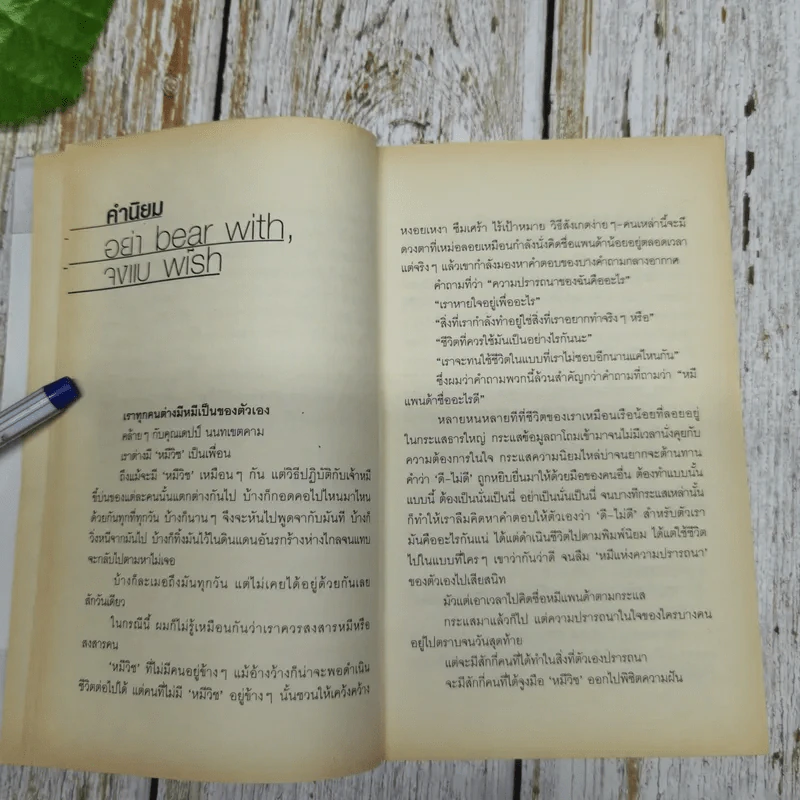 คำนิยม
อย่า bear with,
จงแบ wish
เราทุกคนต่างมีหมีเป็นของตัวเอง
คล้ายๆ กับคุณเดปป์ นนทเขตคาม
เราต่างมี 'หมีวิช' เป็นเพื่อน
ถึงแม้จะมี 'หมีวิช' เหมือนๆ กัน แต่วิธีปฏิบัติกับเจ้าหมี
ขี้บ่นของแต่ละคนนั้นแตกต่างกันไป บ้างก็กอดคอไปไหนมาไหน
ด้วยกันทุกที่ทุกวัน บ้างก็นานๆ จึงจะหันไปพูดจากับมันที บ้างก็
วิ่งหนีจากมันไป บ้างก็ทิ้งมันไว้ในดินแดนอันรกร้างห่างไกลจนแทบ
จะกลับไปตามหาไม่เจอ
บ้างก็ละเมอถึงมันทุกวัน แต่ไม่เคยได้อยู่ด้วยกันเลย
สักวันเดียว
ในกรณีนี้ ผมก็ไม่รู้เหมือนกันว่าเราควรสงสารหมีหรือ
สงสารคน
'หมีวิช' ที่ไม่มีคนอยู่ข้างๆ แม้อ้างว้างก็น่าจะพอดำเนิน
ชีวิตต่อไปได้ แต่คนที่ไม่มี 'หมีวิช' อยู่ข้างๆ นั้นชวนให้เคว้งคว้าง
หงอยเหงา ซึมเศร้า ไร้เป้าหมาย วิธีสังเกตง่ายๆ-คนเหล่านี้จะมี
ดวงตาที่เหม่อลอยเหมือนกำลังนั่งคิดชื่อแพนด้าน้อยอยู่ตลอดเวลา
แต่จริงๆ แล้วเขากำลังมองหาคำตอบของบางคำถามกลางอากาศ
คำถามที่ว่า "ความปรารถนาของฉันคืออะไร"
"เราหายใจอยู่เพื่ออะไร"
"สิ่งที่เรากำลังทำอยู่ใช่สิ่งที่เราอยากทำจริงๆ หรือ"
"ชีวิตที่ควรใช้มันเป็นอย่างไรกันนะ"
"เราจะทนใช้ชีวิตในแบบที่เราไม่ชอบอีกนานแค่ไหนกัน"
ซึ่งผมว่าคำถามพวกนี้ล้วนสำคัญกว่าคำถามที่ถามว่า "หมี
แพนด้าชื่ออะไรดี"
หลายหนหลายทีที่ชีวิตของเราเหมือนเรือน้อยที่ลอยอยู่
ในกระแสธารใหญ่ กระแสข้อมูลถาโถมเข้ามาจนไม่มีเวลานั่งคุยกับ
ความต้องการในใจ กระแสความนิยมไหลบ่าจนยากจะต้านทาน
คำว่า 'ดี-ไม่ดี' ถูกหยิบยื่นมาให้ด้วยมือของคนอื่น ต้องทำแบบนั้น
แบบนี้ ต้องเป็นนั่นเป็นนี่ อย่าเป็นนั่นเป็นนี่ จนบางทีกระแสเหล่านั้น
ก็ทำให้เราลืมคิดหาคำตอบให้ตัวเองว่า 'ดี-ไม่ดี' สำหรับตัวเรา
มันคืออะไรกันแน่ ได้แต่ดำเนินชีวิตไปตามพิมพ์นิยม ได้แต่ใช้ชีวิต
ไปในแบบที่ใครๆ เขาว่ากันว่าดี จนลืม 'หมีแห่งความปรารถนา'
ของตัวเองไปเสียสนิท
มัวแต่เอาเวลาไปคิดชื่อหมีแพนด้าตามกระแส
กระแสมาแล้วก็ไป แต่ความปรารถนาในใจของใครบางคน
อยู่ไปตราบจนวันสุดท้าย
แต่จะมีสักกี่คนที่ได้ทำในสิ่งที่ตัวเองปรารถนา
จะมีสักกี่คนที่ได้จูงมือ 'หมีวิช' ออกไปพิชิตความฝัน